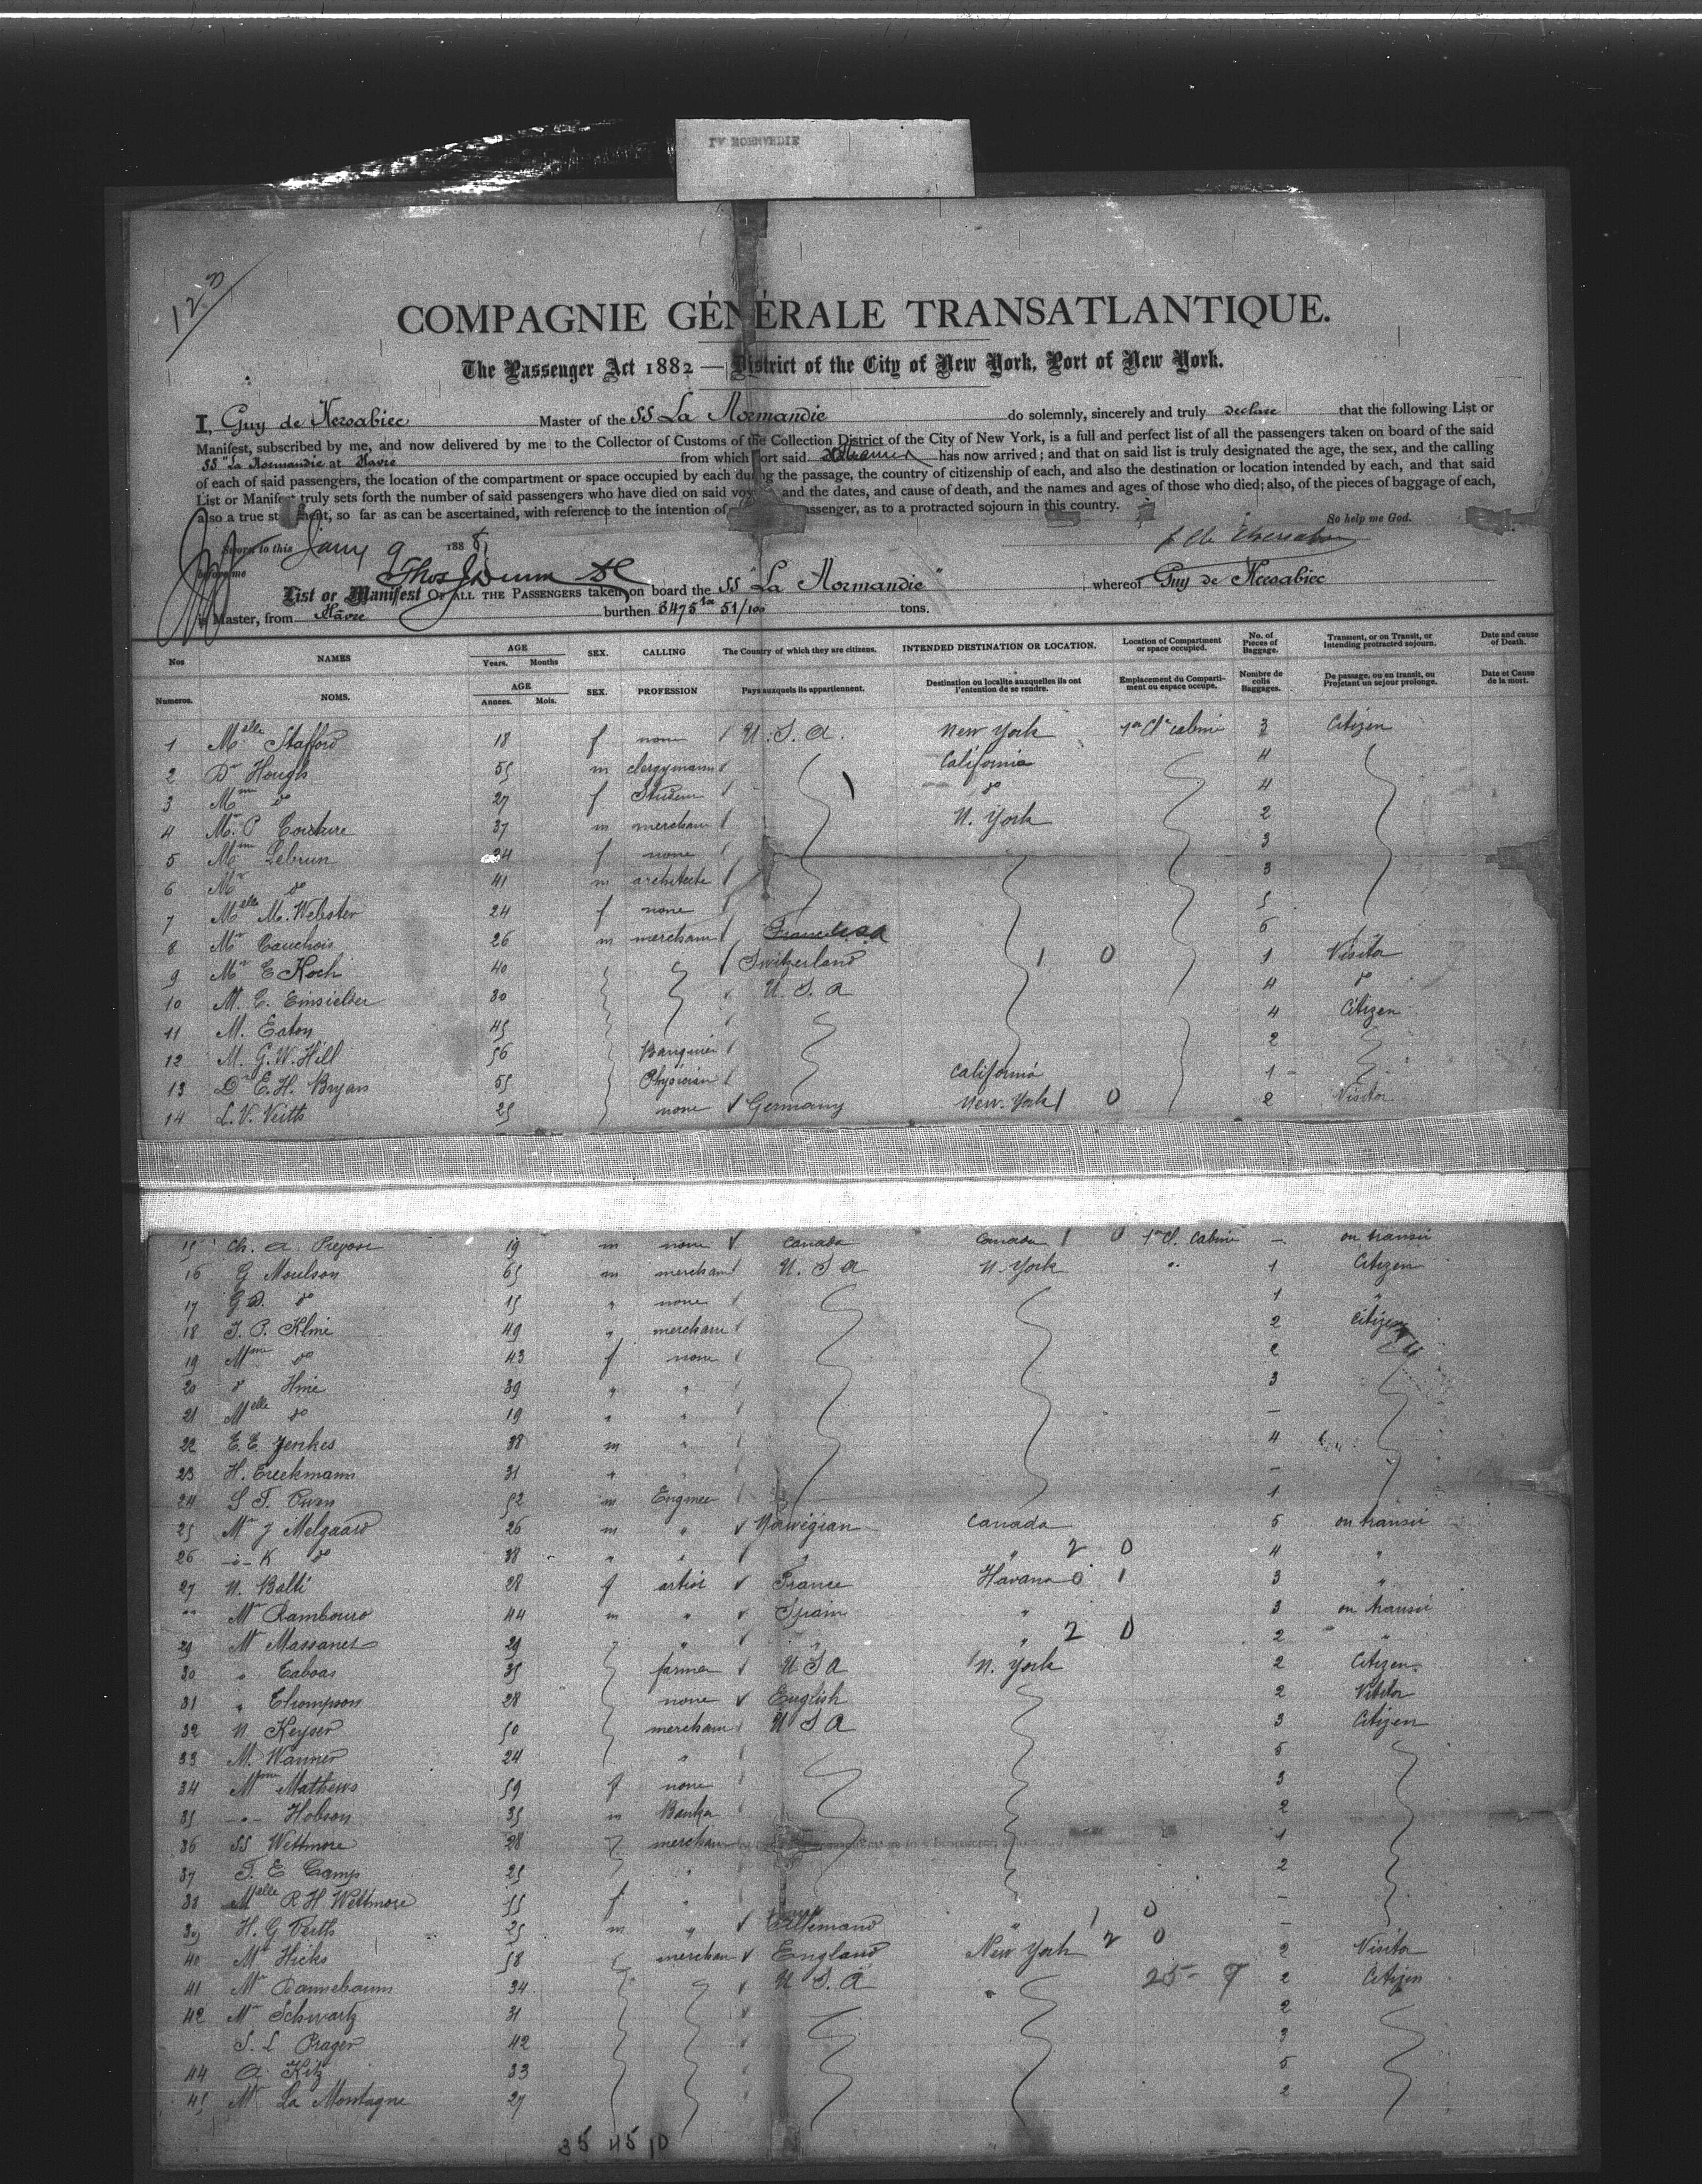 LA NORMANDIE
COMPAGNIE GÉNÉRALE TRANSATLANTIQUE.
The Passenger Act 1882 — District of the City of New York, Port of New York.
I, Guy de Kersabiec Master of the SS La Normandie do solemnly, sincerely and truly declare that the following List or
Manifest, subscribed by me, and now delivered by me to the Collector of Customs of the Collection District of the City of New York, is a full and perfect list of all the passengers taken on board of the said
SS "La Normandie at Havre from which port said has now arrived; and that on said list is truly designated the age, the sex, and the calling
of each of said passengers, the location of the compartment or space occupied by each during the passage, the country of citizenship of each, and also the destination or location intended by each, and that said
List or Manifest truly sets forth the number of said passengers who have died on said and the dates, and cause of death, and the names and ages of those who died; also, of the pieces of baggage of each,
also a true so far as can be ascertained, with reference to the intention of passenger, as to a protracted sojourn in this country.
So help me God.
Sworn to this Jany 9 1888
before me
List or Manifest OF ALL THE PASSENGERS taken on board the SS "La Normandie" whereof Guy de Kersabiec
is Master, from Havre burthen 3475 tx 51/100 tons.
Nos NAMES AGE Years. Months SEX. CALLING The Country of which they are citizens. INTENDED DESTINATION OR LOCATION. Location of Compartment or space occupied. No. of Pieces of Baggage. Transient, or on Transit, or Intending protracted sojourn. Date and cause of Death.
Numeros. NOMS. AGE Annees. Mois. SEX. PROFESSION Pays auxquels ils appartiennent. Destination ou localite auxquelles ils ont l'entention de se rendre. Emplacement du Compartiment ou espace occupe. Nombre de colis Baggages. De passage, ou en transit, ou Projetant un sejour prolonge. Date et Cause de la mort.
1 Melle Stafford 18 f none U.S.A. New York 1er Cl. cabine 3 Citizen
2 Dr Hough 55 m clergymann California 4
3 Mme do 27 f do 4
4 Mr P. Couture 37 m merchant N. York 2
5 Mme Lebrun 34 f none 3
6 Mr do 41 m architecte 3
7 Melle M. Webster 24 f none 5
8 Mr Cauchois 26 m merchant France USA 6
9 Mr E Koch 40 Switzerland 1 0 1 Visitor
10 M. E. Einsielder 30 U.S.A 4 do
11 M. Eaton 45 4 Citizen
12 M. G. W. Hill 56 Banquier 2
13 Dr E. H. Bryan 55 Physician California 1
14 L. V. Veith 25 none Germany New-York 1 0 2 Visitor
15 Ch. A. 19 m none Canada Canada 1 0 1er Cl. Cabine - on transit
16 G Moulson 65 m merchant U.S.A N. York " 1 Citizen
17 G D. do 15 " none 1 "
18 J. P. Kline 49 " merchant 2 Citizen
19 Mme do 43 f none 2
20 do Hine 39 " " 3
21 Melle do 19 " " -
22 E. E. Jenkes 38 m " 4
23 H. Erickmann 31 " -
24 S T. Owen 52 m Engineer 1
25 Mr J Melgaard 26 m " Norwigian Canada 5 on transit
26 -"- K do 38 " " " " 2 0 4 "
27 N. Balti 28 f artist France Havana 0 1 3 "
Mr Rambouro 44 m " Spain " 3 on transit
29 Mr Massanet 29 " " " 2 0 2 "
30 " Taboas 35 farmer U S A N. York 2 Citizen
31 " Thompson 28 none English 2 Visitor
32 N. Keyser 50 merchant U S A 3 Citizen
33 M. Wanner 24 " 5
34 Mme Mathews 59 f none 3
35 -"- Hobson 35 m Banker 2
36 SS Wettmore 28 merchant 1
37 T. E Camp 25 " 2
38 Melle R H Wettmore 55 f " -
39 H. G Veith 25 m " Allemand " 1 0 -
40 Mr Hicks 58 merchant England New York 2 0 2 Visitor
41 Mr Dannebaum 34 U.S.A " 25- 7 2 Citizen
42 Mr Schwartz 31 2
S. L Prager 42 3
44 A. Kitz 33 5
45 Mr La Montagne 27 2
35 45 10